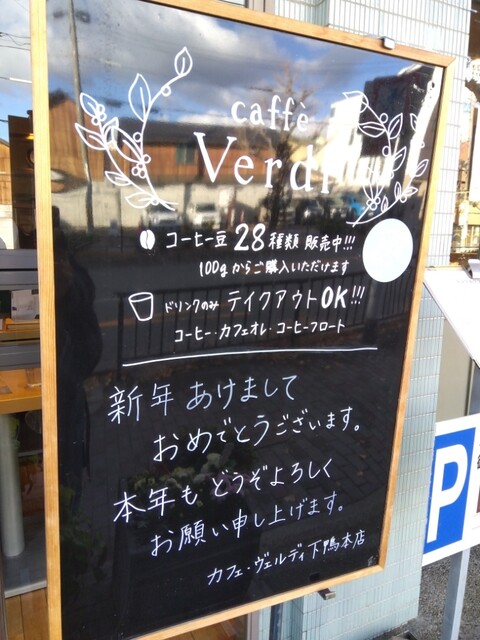 caffè
Verdi
コーヒー豆 28種類 販売中!!!
100gからご購入いただけます
ドリンクのみ テイクアウトOK!!!
コーヒー・カフェオレ・コーヒーフロート
新年 あけまして
おめでとうございます。
本年も どうぞよろしく
お願い申し上げます。
カフェ・ヴェルディ下鴨本店
P